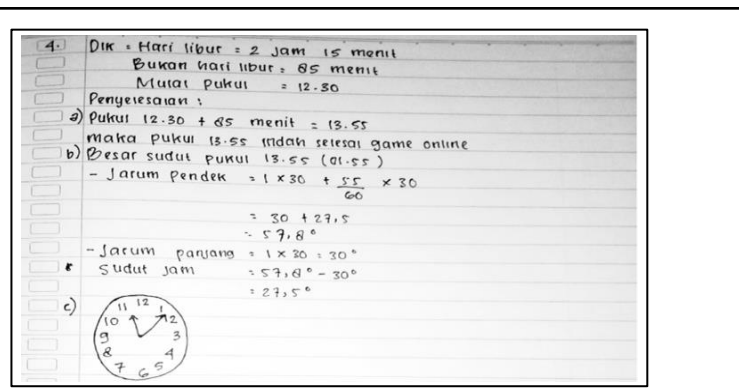 4. Dik = Hari libur = 2 jam 15 menit
Bukan hari libur = 85 menit
Mulai pukul = 12.30
Penyelesaian :
a) Pukul 12.30 + 85 menit = 13.55
maka pukul 13.55 indah selesai game online
b) Besar sudut pukul 13.55 (01.55)
- Jarum pendek = 1 x 30 + 55/60 x 30
= 30 + 27,5
= 57,8°
- Jarum panjang = 1 x 30 = 30°
Sudut jam = 57,8° - 30°
= 27,5°
c)
11 12 1
10 2
9 3
8 4
7 6 5